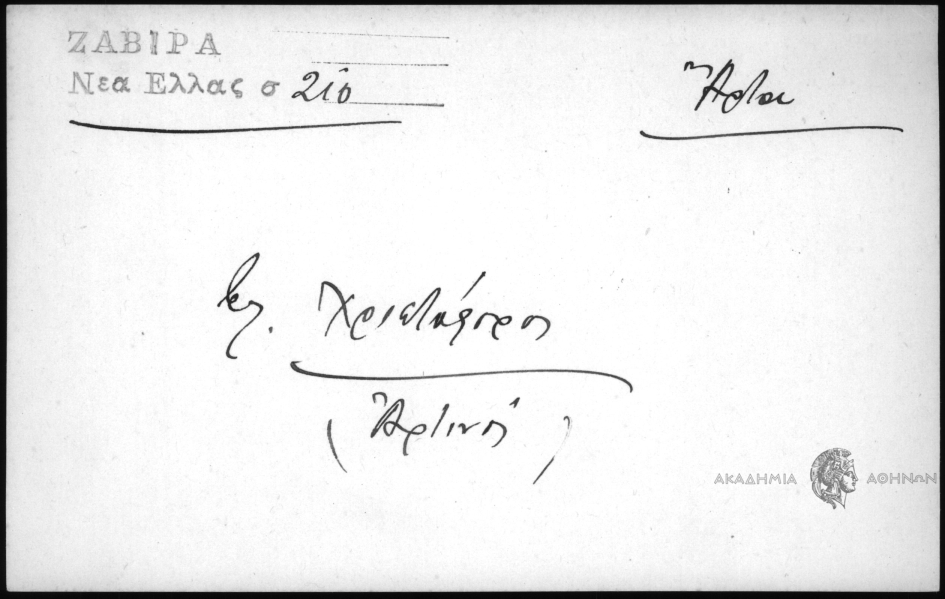 ΖΑΒΙΡΑ
Νεα Ελλας σ 210
Ἄρτα
Χριστόφορος
(Ἀρτινός)
ΑΚΑΔΗΜΙΑ ΑΘΗΝΩΝ